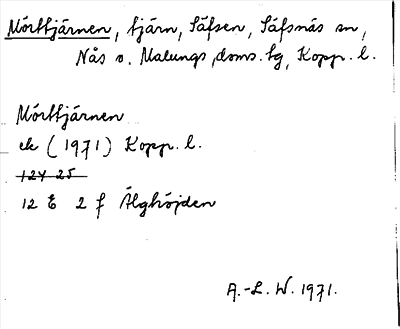 Mörttjärnen, tjärn, Säfsen, Säfsnäs sn,
Nås o. Malungs doms. tg, Kopp. l.
Mörttjärnen
ek (1971) Kopp. l.
124 25
12 E 2 f Älghöjden
A.-L. W. 1971.